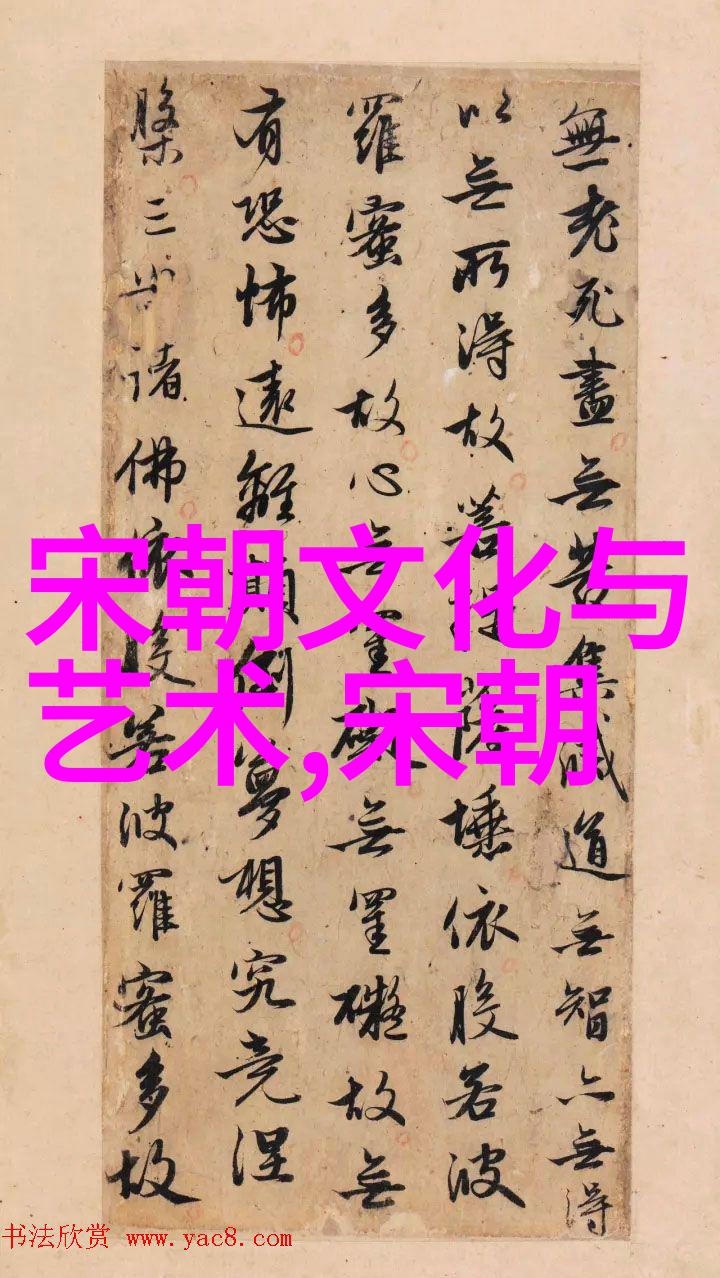 無老死盡無苦集滅道無智亦無得
以無所得故菩提薩埵依般若波
羅蜜多故心無罣礙無罣礙故無
有恐怖遠離顛倒夢想究竟涅
槃三世諸佛依般若波羅蜜多故
宋朝文化与
艺术,宋朝
书法欣赏 www.yac8.com